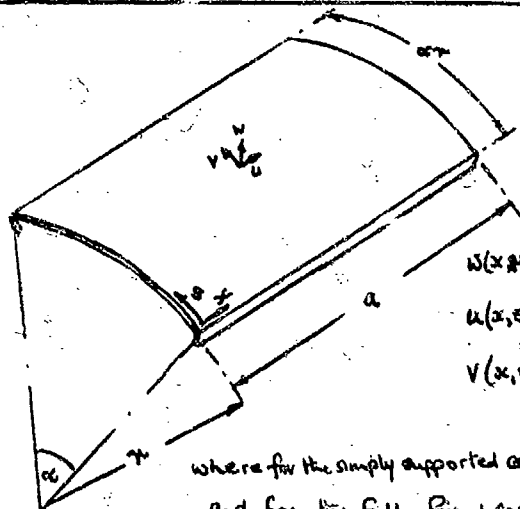 αr
w
v u
s x
a
W(x,
u(x,
v(x,
α r
where for the simply supported
and for the fully